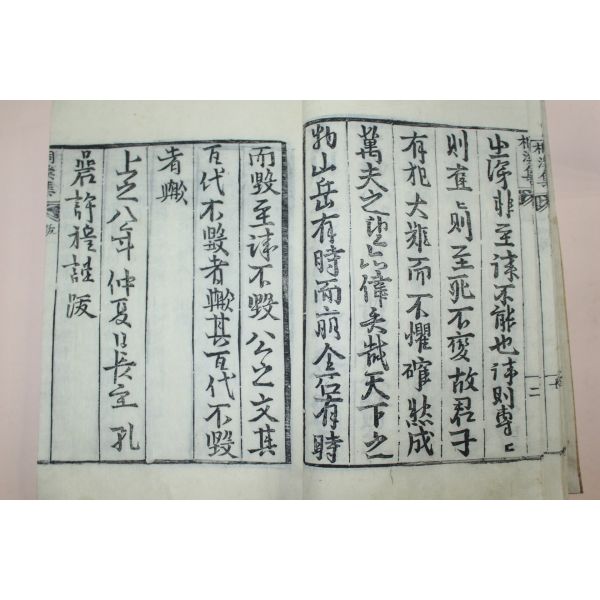 桐溪集 跋 二
之深非至誠不能也誠則專〻
則確〻則至死不變故君子
有犯大難而不懼確然成
萬夫之望亦偉矣哉天下之
物山岳有時而崩金石有時
而毀至誠不毀 公之文其
百代不毀者歟其百代不毀
者歟
上之八年仲夏日長至 孔
巖許穆謹跋
桐溪集 跋